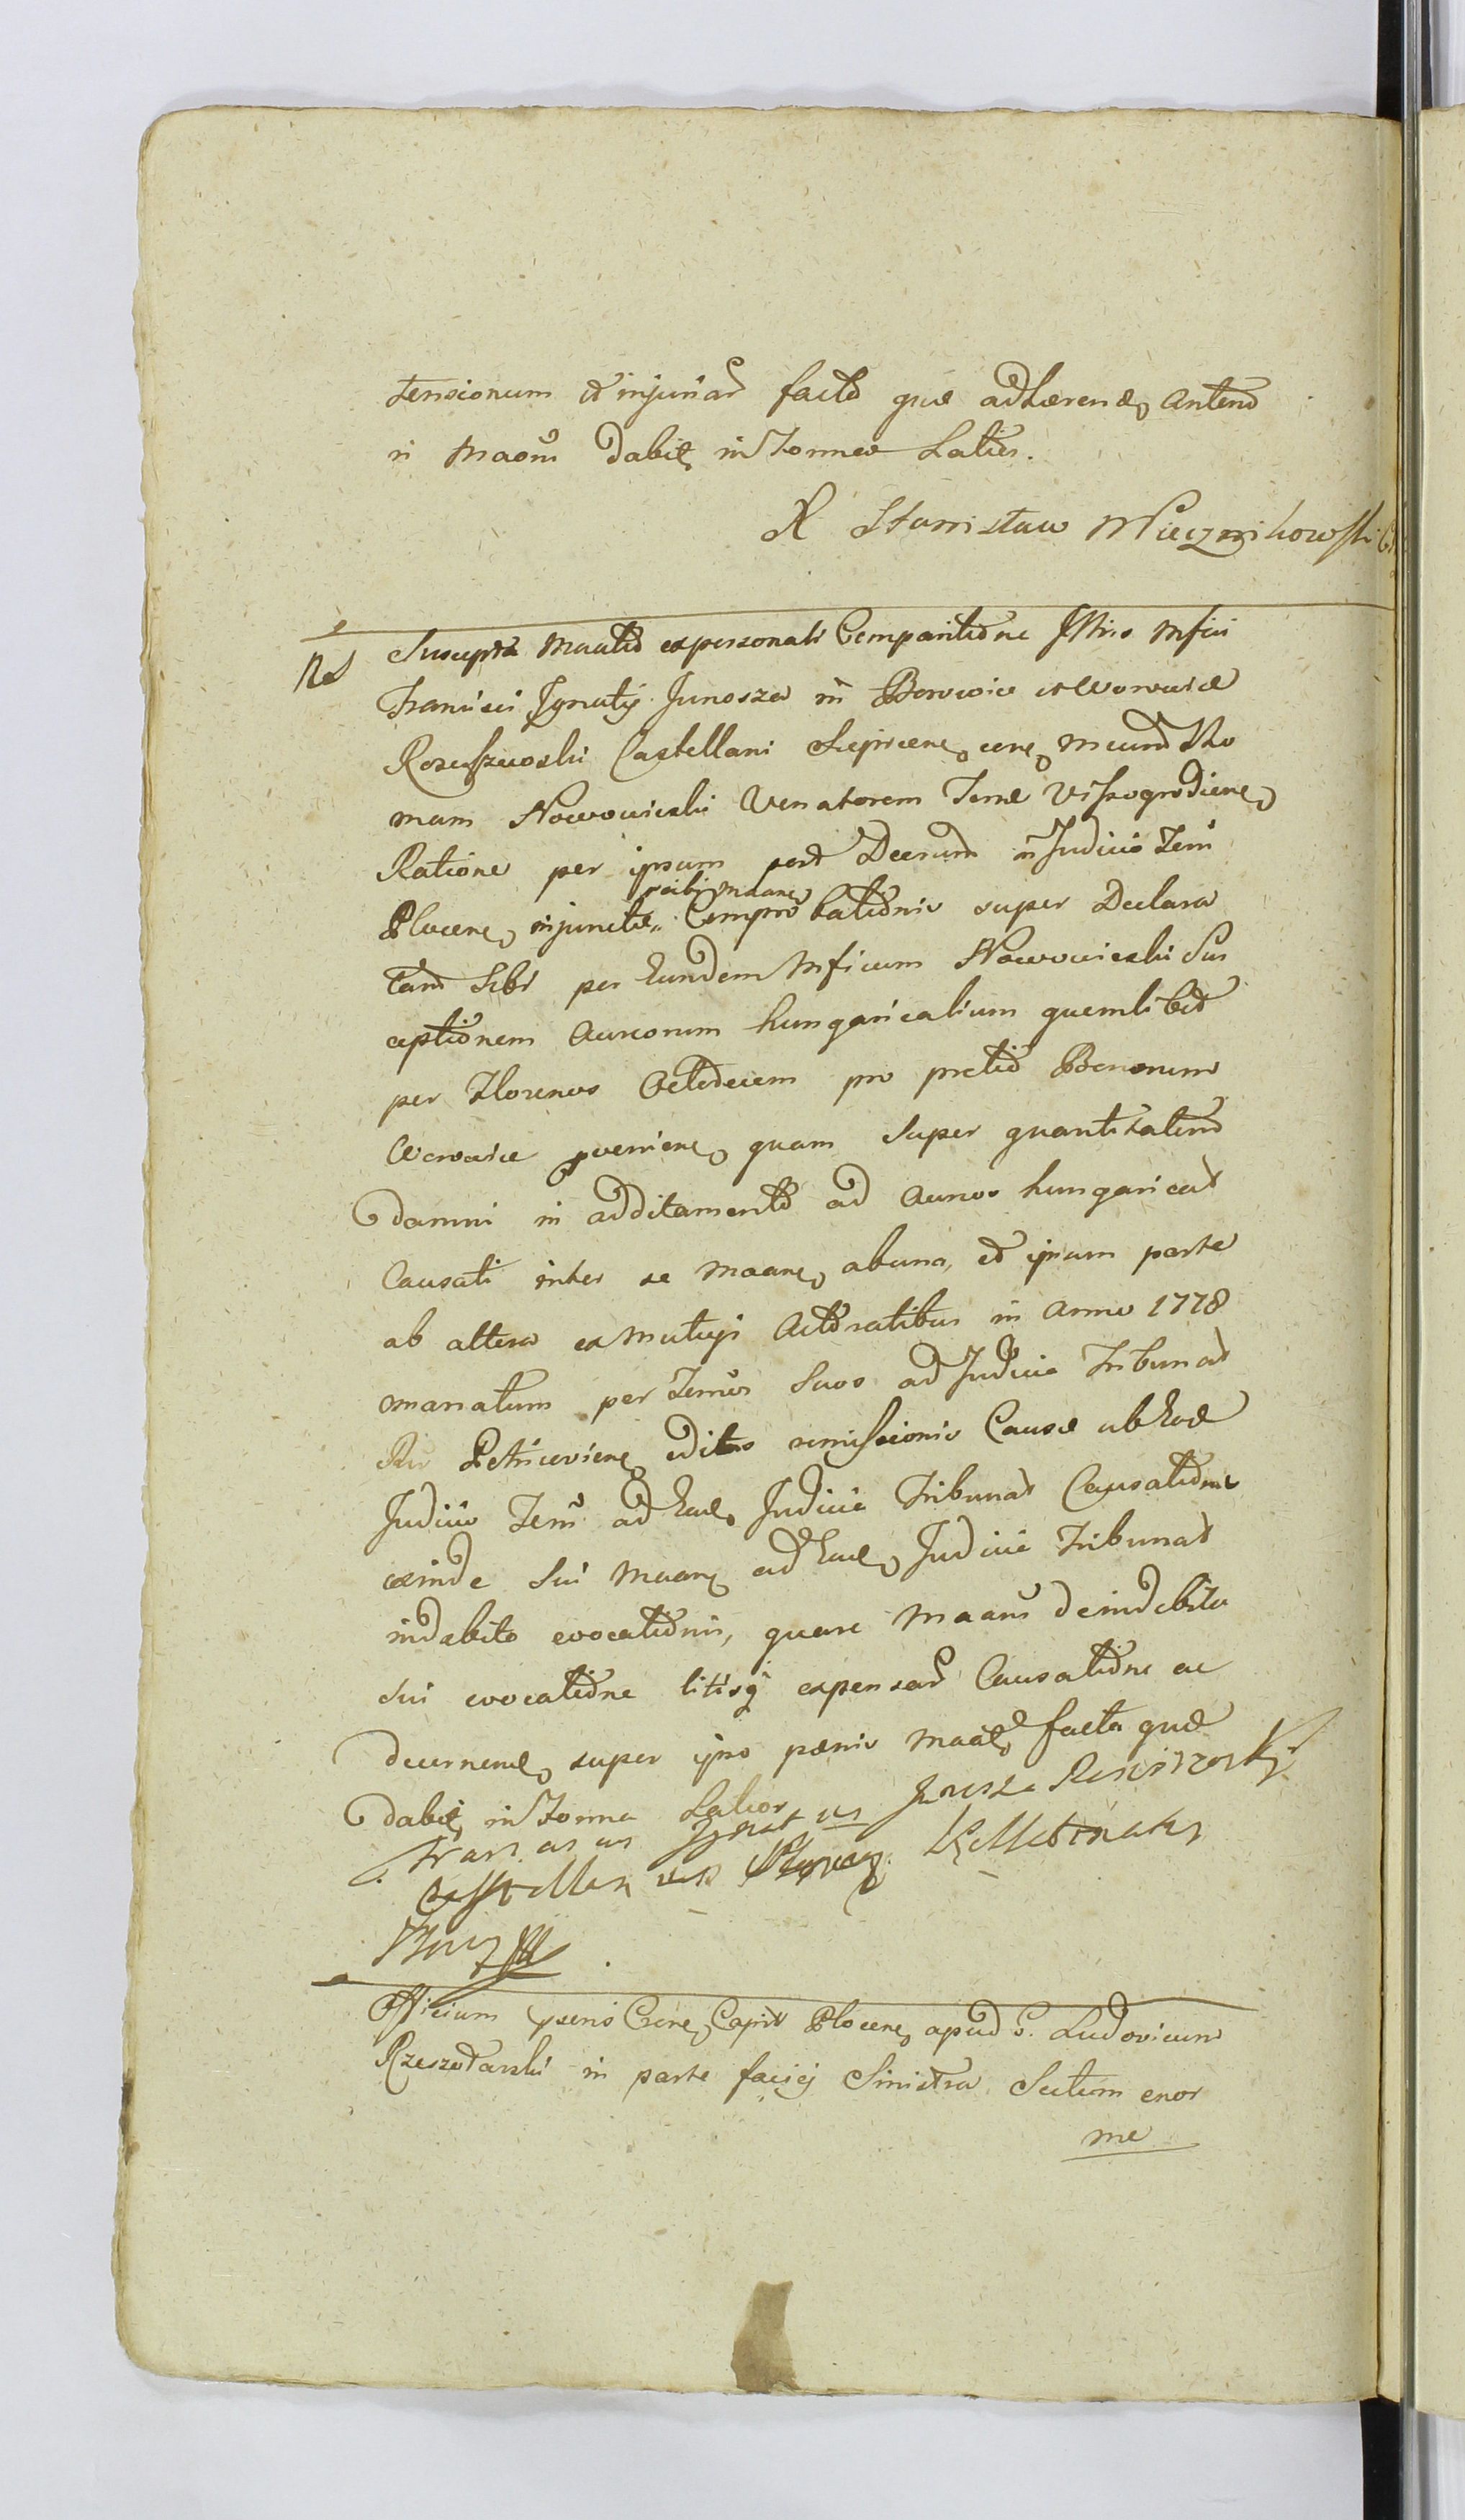 tensionum et injuriar facto quæ adhæren, anteno
in maom dabit, in Forma Latior.
X Stanisław Miecznikowski
Rel
Suscepta Maatio ex personali Comparitione Illris Mfici
Francisci Ignatij Junosza in Borowice et Worowice
Rosciszewski Castellani Sieprcen, cen, Mcum Tho
mam Nowowieski Venatorem Terræ Vissogrodien,
Ratione per ipsum post Decrum in Judicio Terri
Plocen, injunctæ sibi maane, Comprobationis super Declara
tam Sibi per Eundem Mficum Nowowieski Sus
ceptionem Aureorum hungaricalium quemlibet
per Florenos Octodecem pro pretio Bonorum
Worowice provenien, quam super quantitatem
damni in additamento ad Aureos hungarical
Causati inter se maane, ab una, et ipsum parte
ab altera ex Mutuis Actoratibus in Anno 1778
manatum per Terrios Suos ad Judicia Tribunal
Rni Petricovien, editas remissionis Causæ ab Eod
Judicio Terri ad Ead, Judicia Tribunal Causatione
exinde Sui maane, ad Ead, Judicia Tribunal
indebito evocationis, quare Maans de indebita
Sui evocatione litisq expensar Causatione ac
decernend, super ipso pænis maat, facta quæ
dabit, in Forma Latior
Franciscus Ignatius Junosza Rosciszewski
Castellanus
Officium præns Cren, Capit Plocen, apud G. Ludovicum
Rzeszotarski in parte faciej Sinistra Sectum enor
me